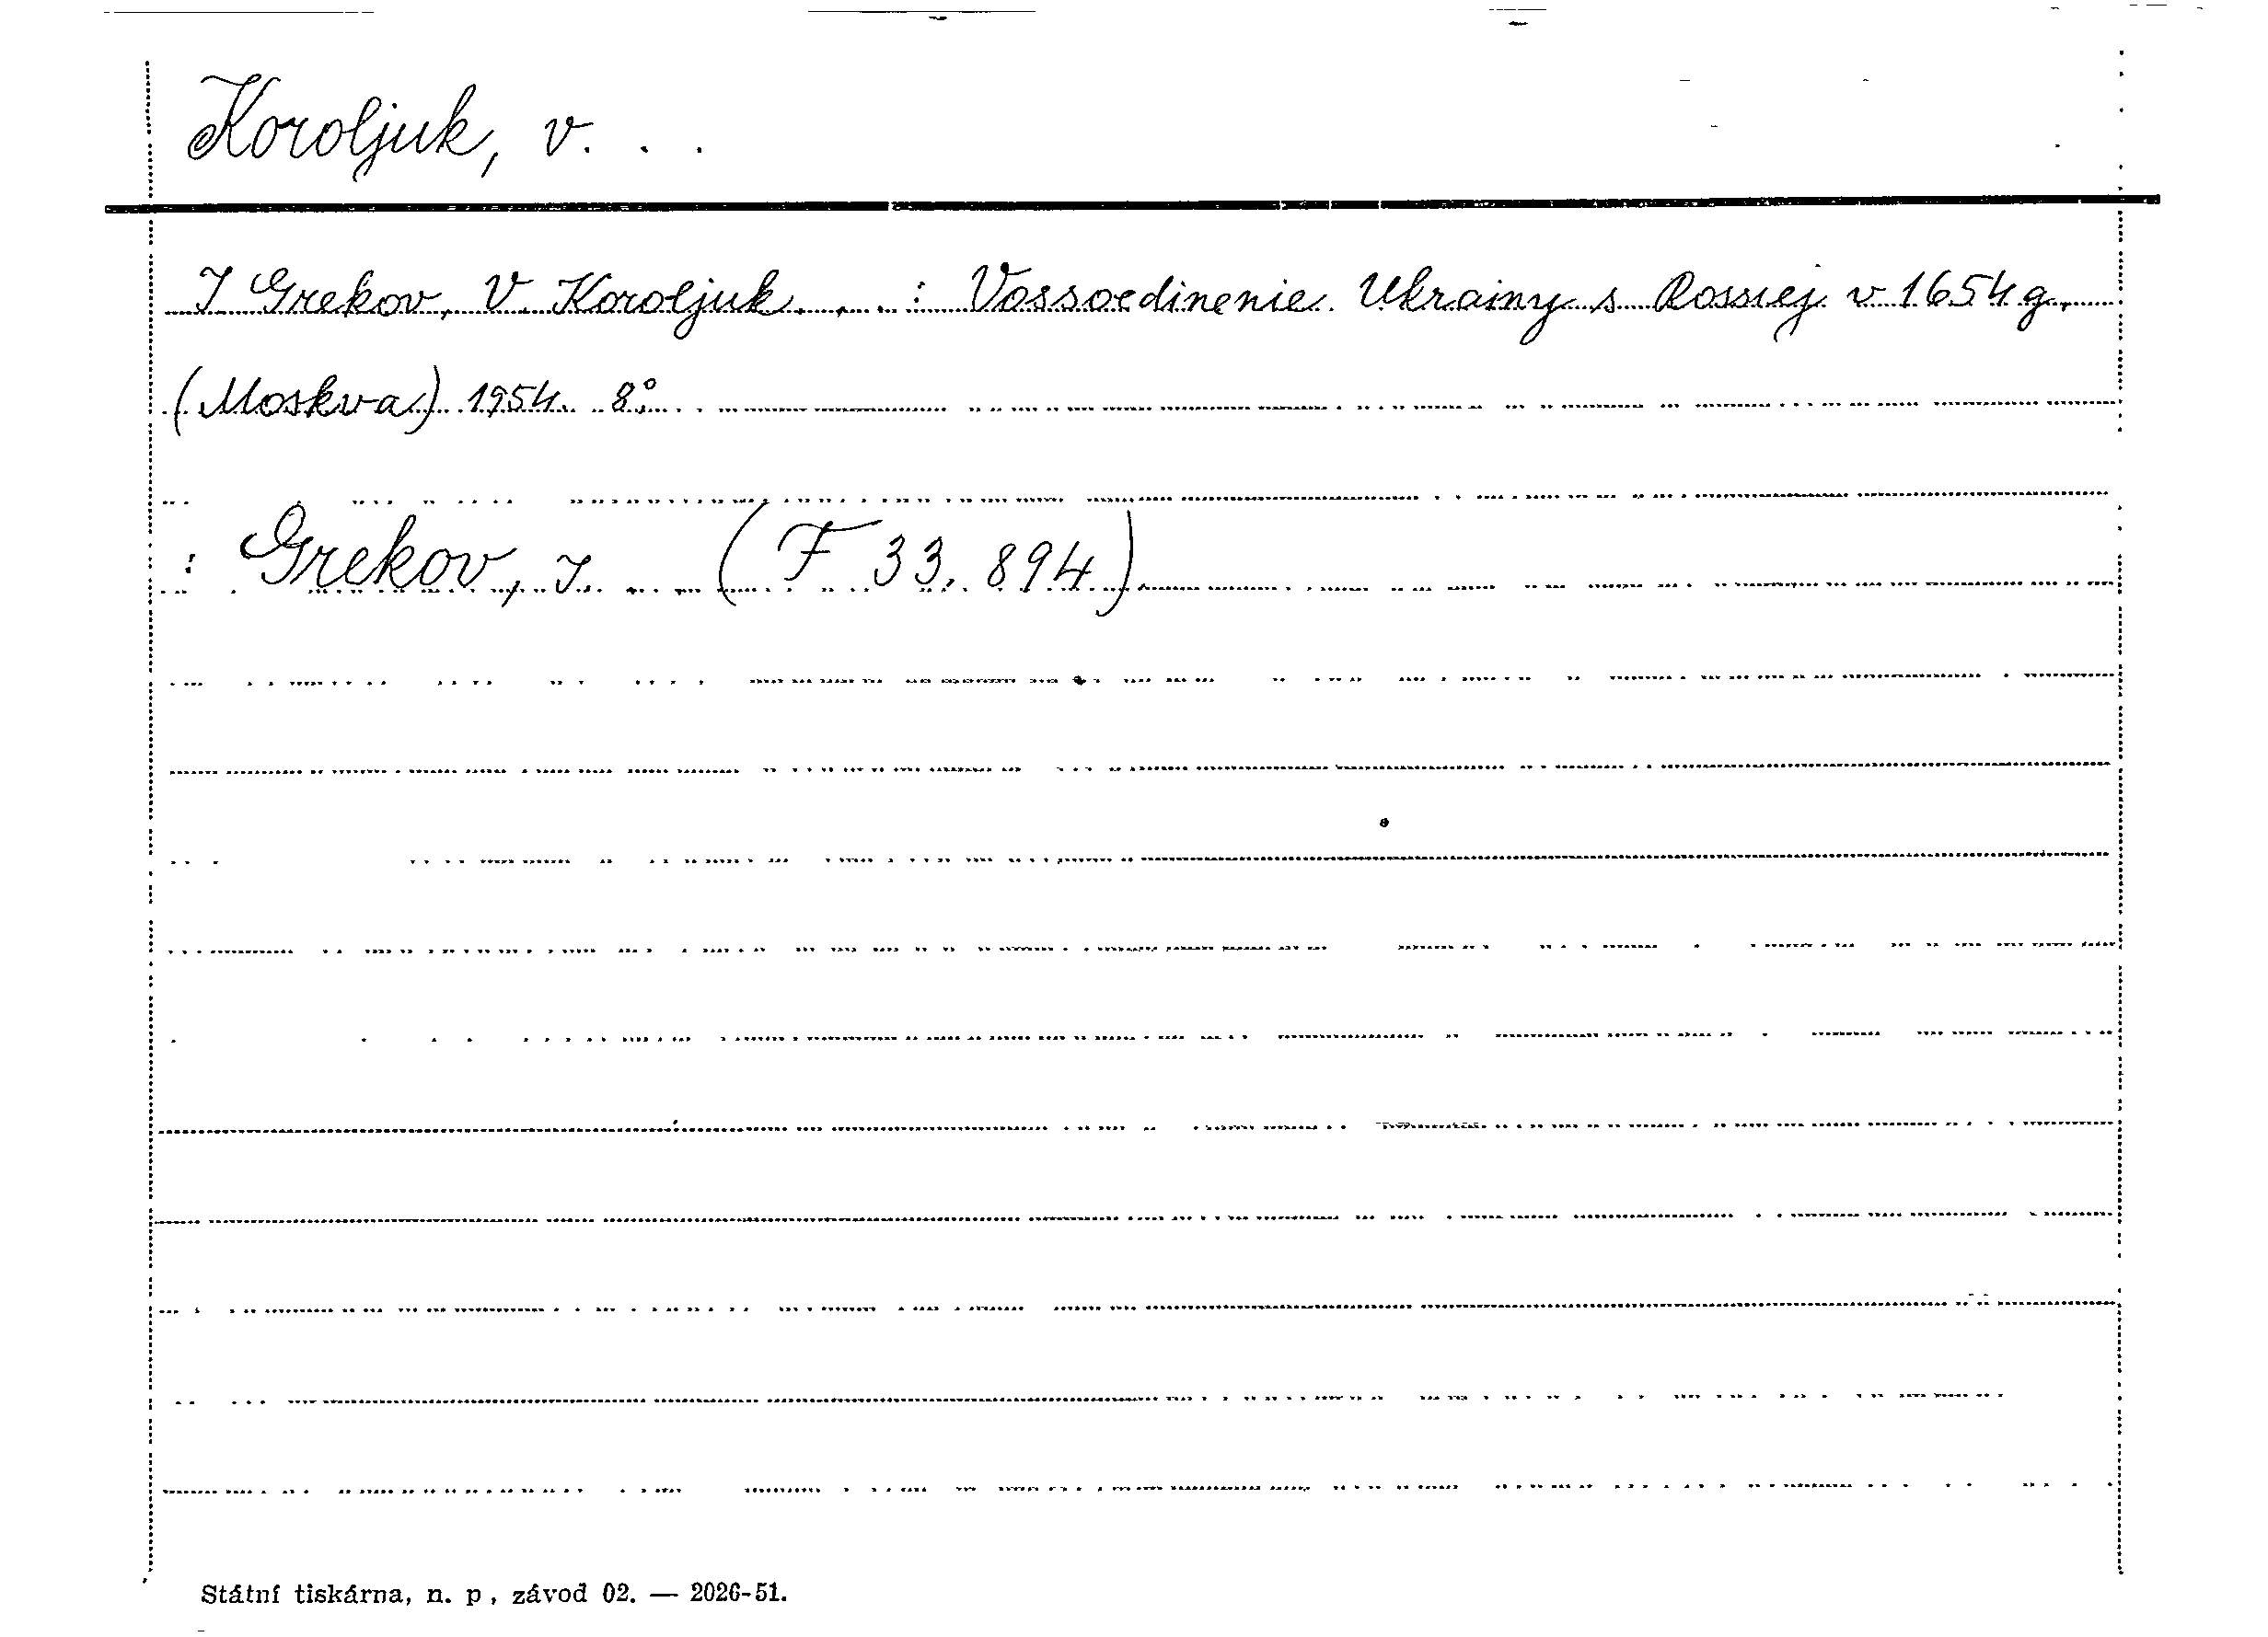 Koroljuk, V. . .
I Grekov, V. Koroljuk. . . : Vossoedinenie Ukrainy s Rossiej v 1654 g.
(Moskva) 1954. 8°.
: Grekov, I. . . (F 33.894)
Státní tiskárna, n. p, závod 02. — 2026-51.